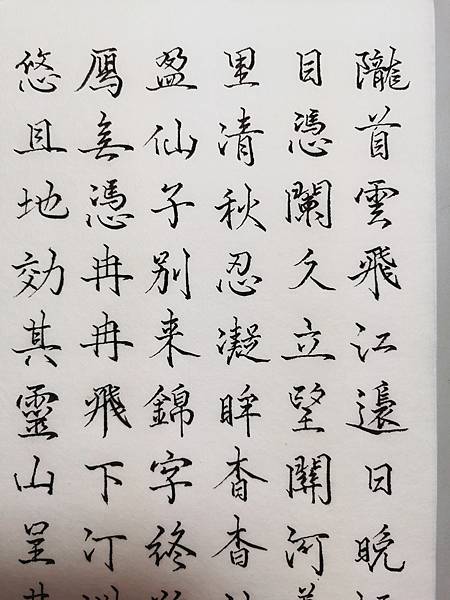 隴首雲飛江邊日晚
目憑闌久立望關河
里清秋忍凝眸杳杳
盈仙子別来錦字終
鴈無憑冉冉飛下汀
悠且地効其靈山呈